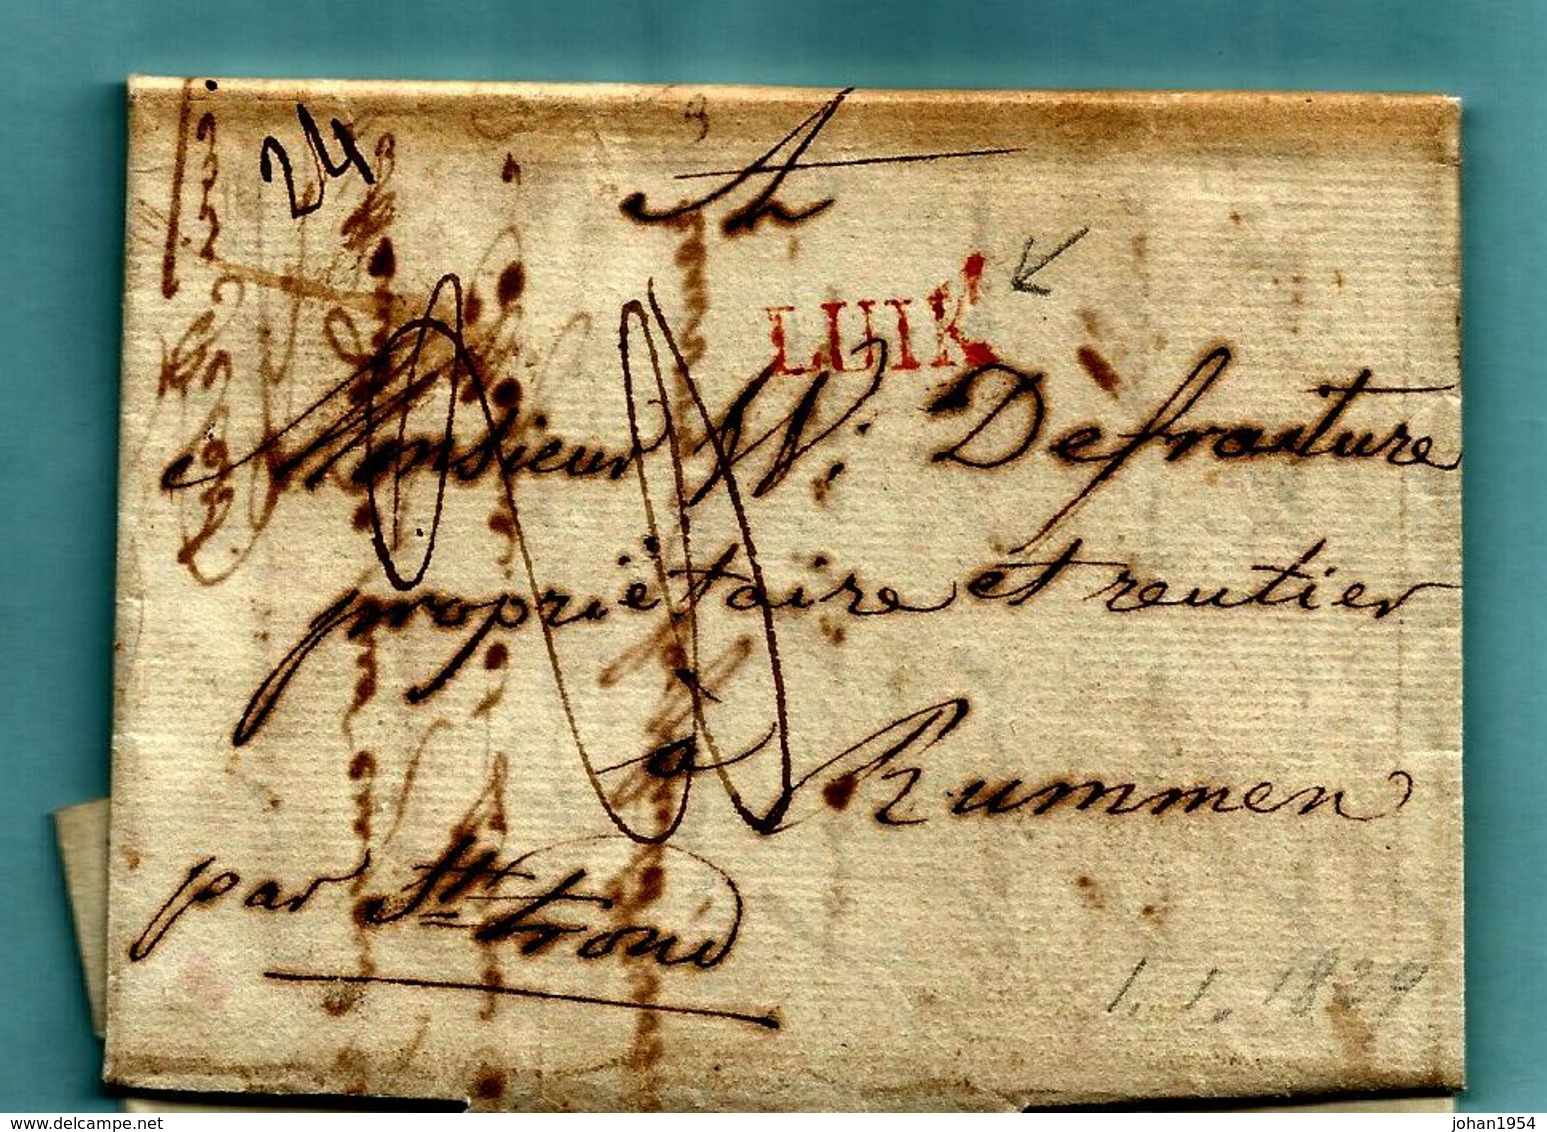 24
A
LUIK
Monsieur W. Defraiture
propriétaire et rentier
à Rummen
par St. trond
1.1.1829
www.delcampe.net
johan1954